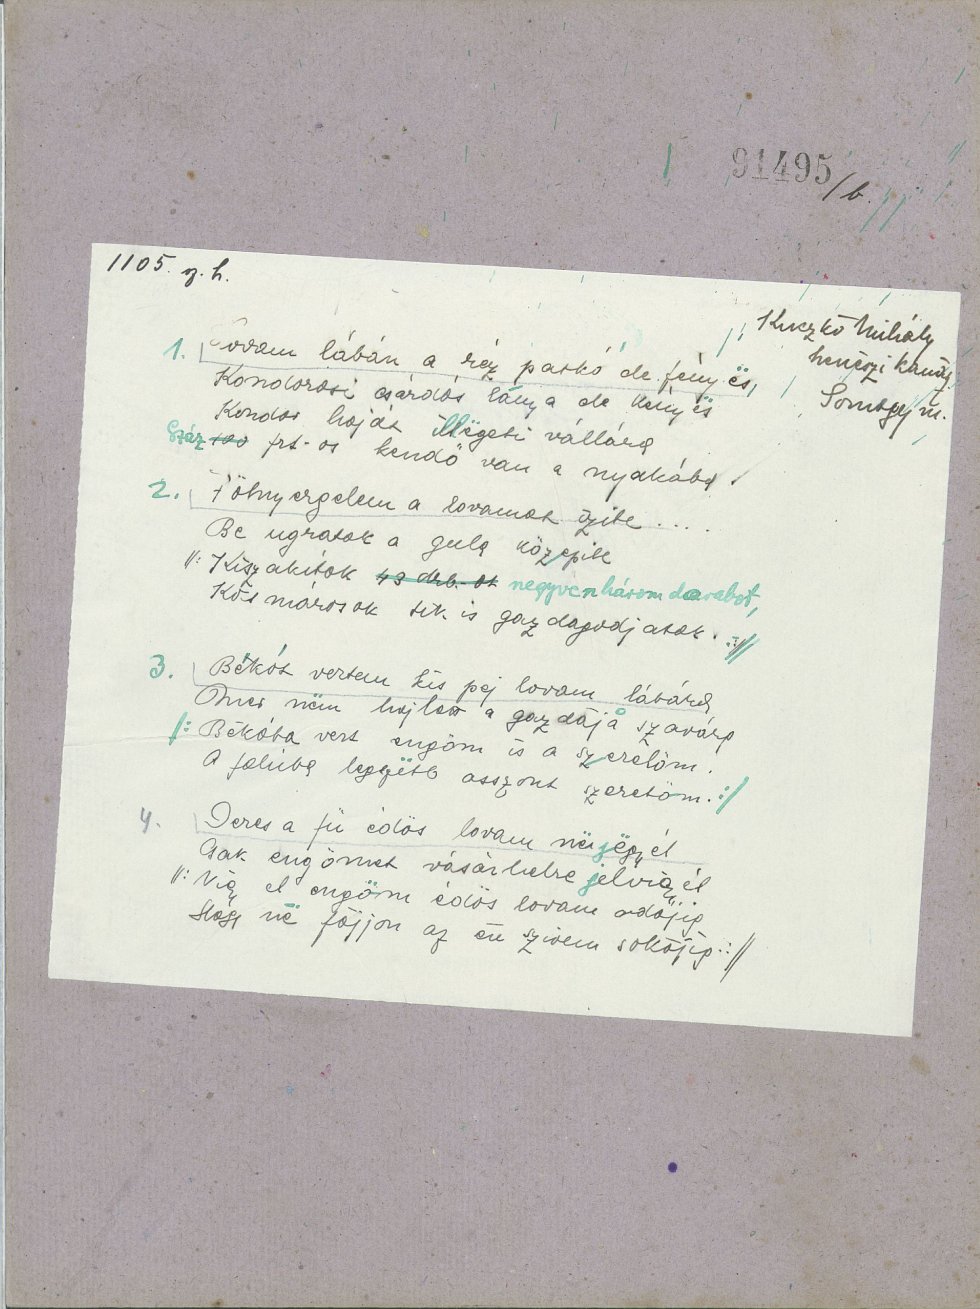 91495/b.
1105. sz. h.
Kuczkó Mihály
henészi kanász
Somogy m.
1. Lovam lábán a réz patkó de fényës,
Kondorosi csárdás lánya de kényës
Kondor haját illëgeti vállára
Száz 100 frt-os kendő van a nyakába.
2. Fölnyergelem a lovamot izibe ....
Be ugratok a gula közepibe
//: Kiszakitok 43 drb-ot negyvenhárom darabot,
Kösmárosok tik is gazdagodjatok. ://
3. Békót vertem kis pej lovam lábára
Mer nëm hajlott a gazdája szavára
/: Békóba vert engöm is a szerelöm.
A faluba legszëbb asszont szeretöm. :/
4. Deres a fü édös lovam në jëgyél
Csak engömet vásárhelre jelvigyél
//: Vigy el engöm édös lovam odájig
Hogy në fájjon az én szivem sokájig ://